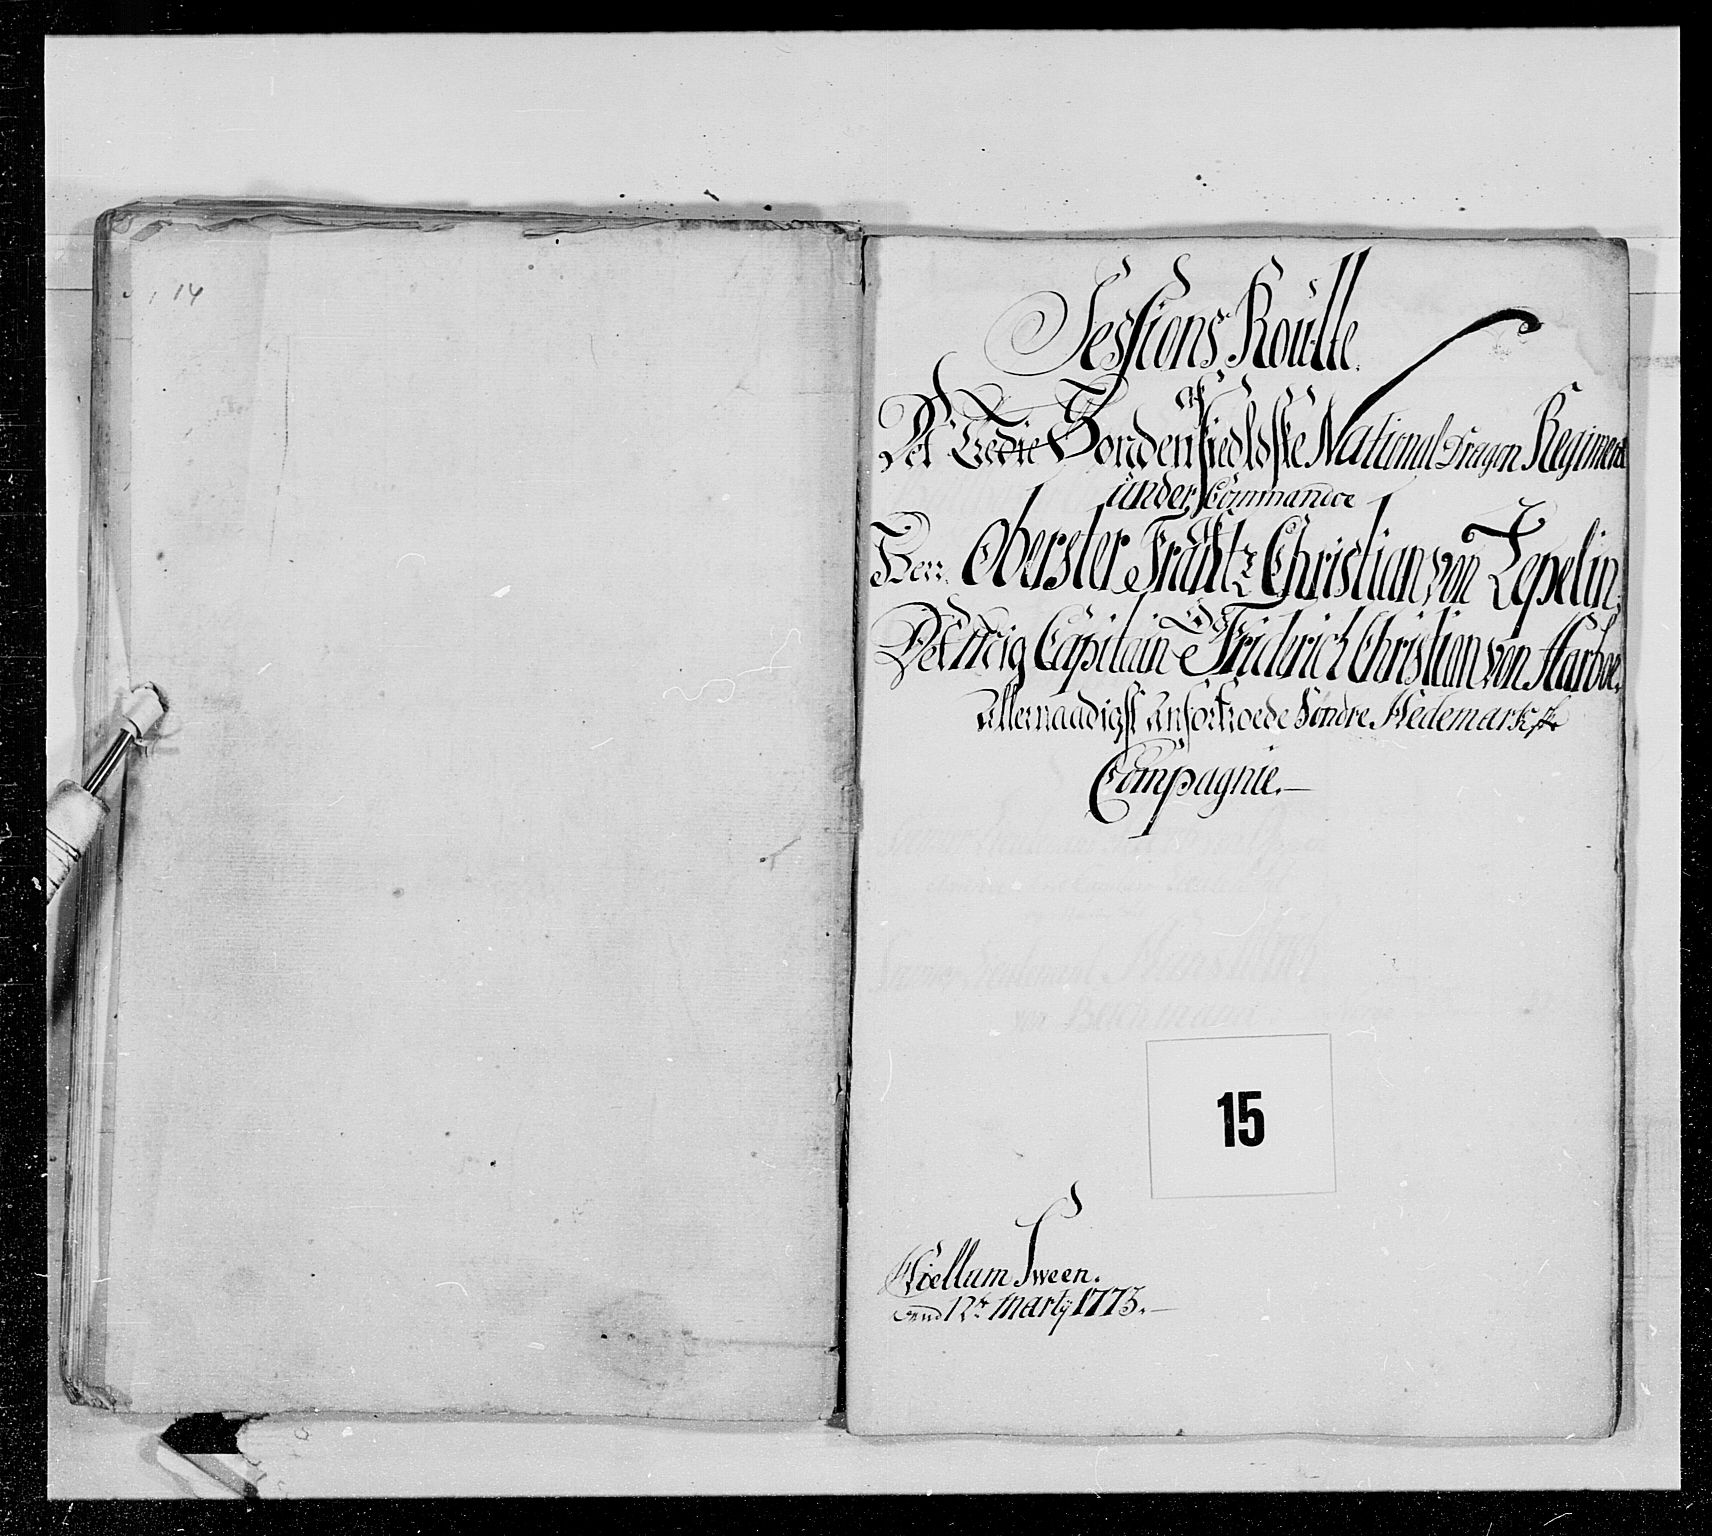 14
Sessions Roulle
af
Det Tredie Söndenfieldske National Dragon Regiment
under Commandoe
Herr Oberster Frantz Christian von Zepelin,
Det mig Capitain Friderich Christian von Harboe,
Allernaadigst anfortroede Söndre Hedemarkske
Compagnie.
15
Hiellum Sween.
end 12te Martÿ 1773.